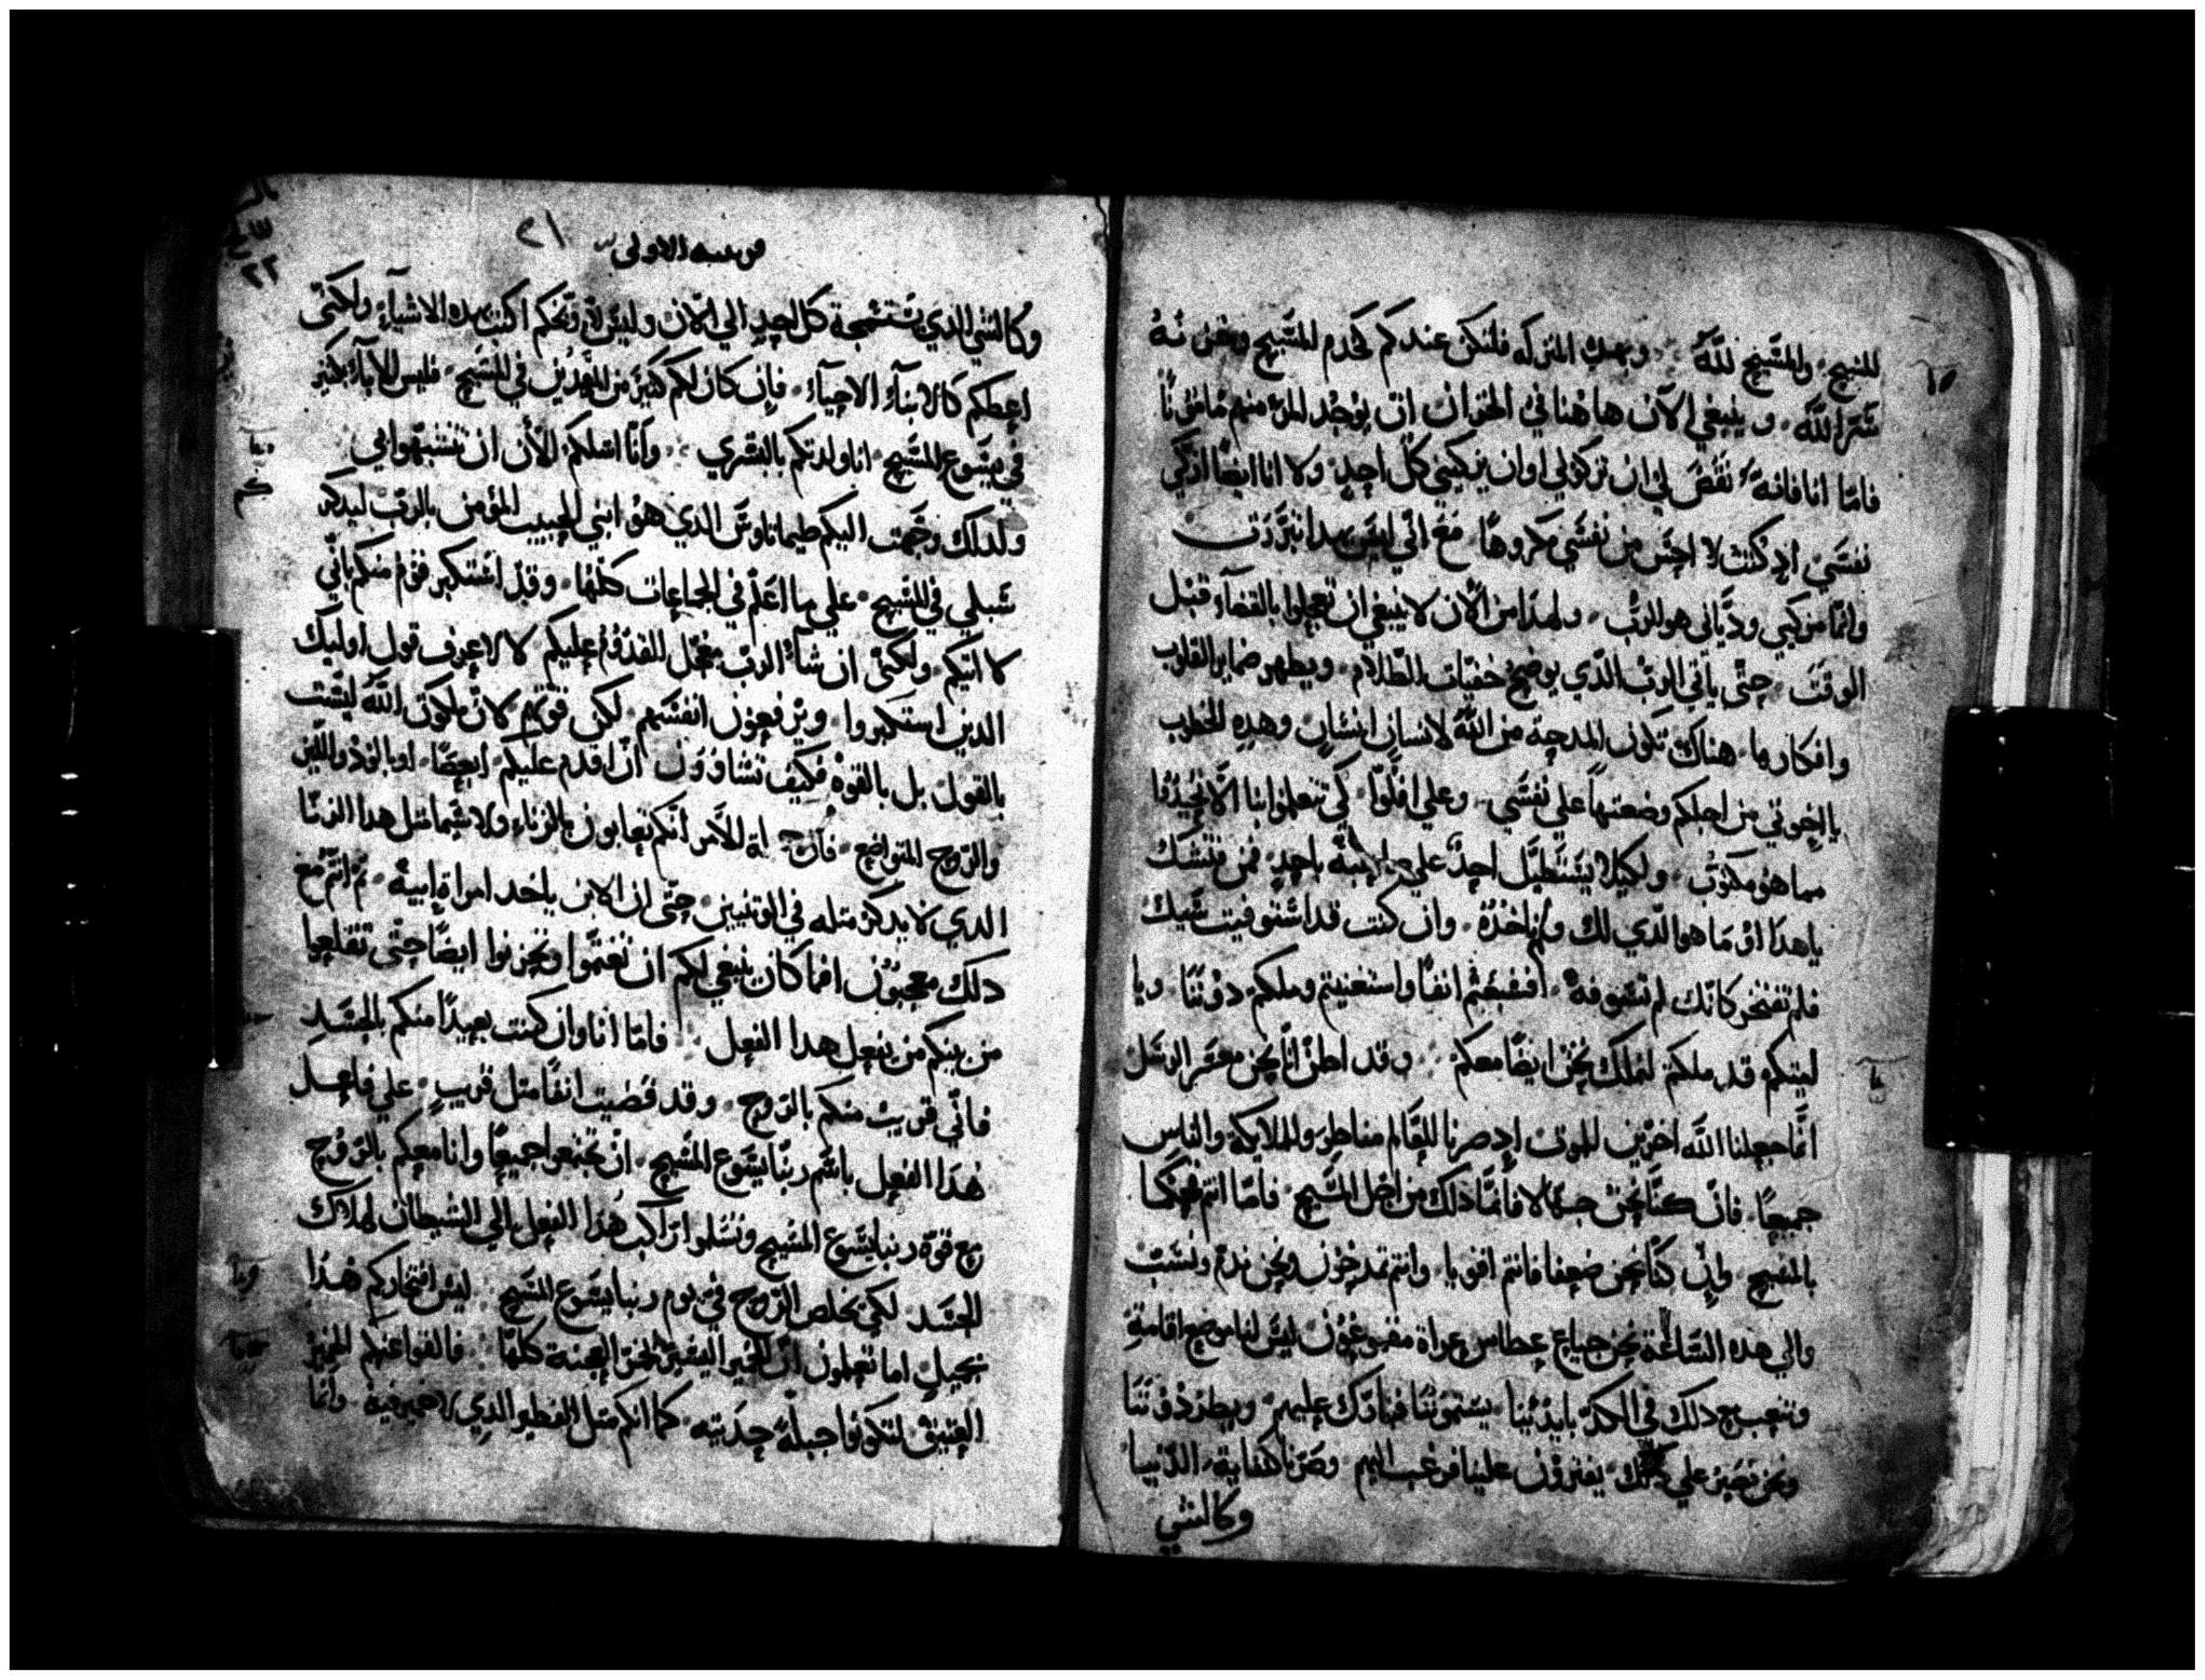 للمسيح، والمسيح لله ۰ وبهذه المنزله فلنكن عندكم كخدم المسيح وخزنة
سر الله، وينبغي الان هاهنا في الخزان ان يوجد المرء منهم مامونا
فاما انا فانه نقص لي ان تزكوني او ان يزكيني كل احد، ولا انا ايضا ازكي
نفسي اد كنت لا احس من نفسي مكروها، مع اني ليس بهدا تبررت
وانما مزكيي ودياني هو الرب، ولهدا من الان لا ينبغي ان تعجلوا بالقضاء قبل
الوقت، حتى ياتي الرب الدي يوضح خفيات الظلام، ويظهر ضماير القلوب
وافكارها، هناك تكون المدحة من الله لانسان انسان وهده الخطوب
يا اخوتي من اجلكم وضعتها على نفسي، وعلى افلوا، كي تتعلموا بنا الا
مما هو مكتوب، ولكيلا يستطيل احد على باحد، فمن فتشك
يا هدا او ما هو الدي لك ولم تاخذه، وان كنت قد استوفيت شيك
فلم تفتخر كانك لم تستوفه، افشبعتم انفا واستغنيتم وملكتم دوننا، ويا
ليتكم قد ملكتم لنملك نحن ايضا معكم ۰ وقد اظن انا نحن معشر الرسل
انما جعلنا الله اخرين للموت اد صرنا للعالم مناظر وللملايكة والناس
جميعا، فان كنا نحن جهالا فانما دلك من اجل المسيح، فاما انتم فحكما
بالمسيح وان كنا نحن ضعفا فانتم اقويا، وانتم تمدحون ونحن ندم ونسب
والي هده الساعة نحن جياع عطاش عراة مقموعون، ليس لنا موضع اقامة
ونتعب مع دلك في الكد بايدينا، يشتموننا فنبارك عليهم، ويطردوننا
ونحن نصبر على دلك، يفترون علينا فنرغب اليهم، وصرنا كنفاية الدنيا
وكالشي
الاولى ٢١
وكالشي الدي يستسمجة كل احد الي الان وليس لاوبخكم اكتب بهده الاشياء ولكني
اعظكم كالابناء الاحباء، فان كان لكم كثير من المهدين في المسيح، فليس الاباء بكثير
في يسوع المسيح، انا ولدتكم بالبشري ۰ وانا اسلكم الان ان تتشبهوا بي
ولدلك وجهت اليكم طيماتاوس الدي هو ابني الحبيب المؤمن بالرب ليدكركم
سبلي في المسيح، على ما اعلم في الجماعات كلها، وقد استكبر قوم منكم باني
لا اتيكم، ولكني ان شاء الرب معجل للقدوم عليكم لا لاعرف قول اوليك
الدين استكبروا ويرفعون انفسهم، لكن قوتهم لان ملكوت الله ليست
بالقول بل بالقوة فكيف تشاوون ان اقدم عليكم، ابعصا، او بالود واللين
والروح المتواضع، لة الامر انكم تعابون بالزناء ولا سيما مثل هدا الزنا
الدي لا يدكر مثله في الوثنيين، حتى ان الابن ياخد امراة ابيه، ثم انتم مع
دلك معجبون اما كان ينبغي لكم ان تغتموا وتحزنوا ايضا حتى تقلعوا
من بينكم من يفعل هدا الفعل ۰ فاما انا وان كنت بعيدا منكم بالجسد
فاني قريب منكم بالروح، وقد قضيت انفا مثل قريب، علي فاعل
هدا الفعل باسم ربنا يسوع المسيح، ان تجتمعوا جميعا وانا معكم بالروح
مع قوة ربنا يسوع المسيح وتسلموا راكب هدا الفعل الي الشيطان لهلاك
الجسد لكي يخلص الروح في يوم ربنا يسوع المسيح، ليس افتخاركم هدا
بجميل اما تعلمون ان الخمير اليسير يخمر العجنة كلها، فالقوا عنكم الخمير
العتيق لتكونوا جبلة حديثه، كما انكم مثل الفطير الدي لا خمير فيه وانما